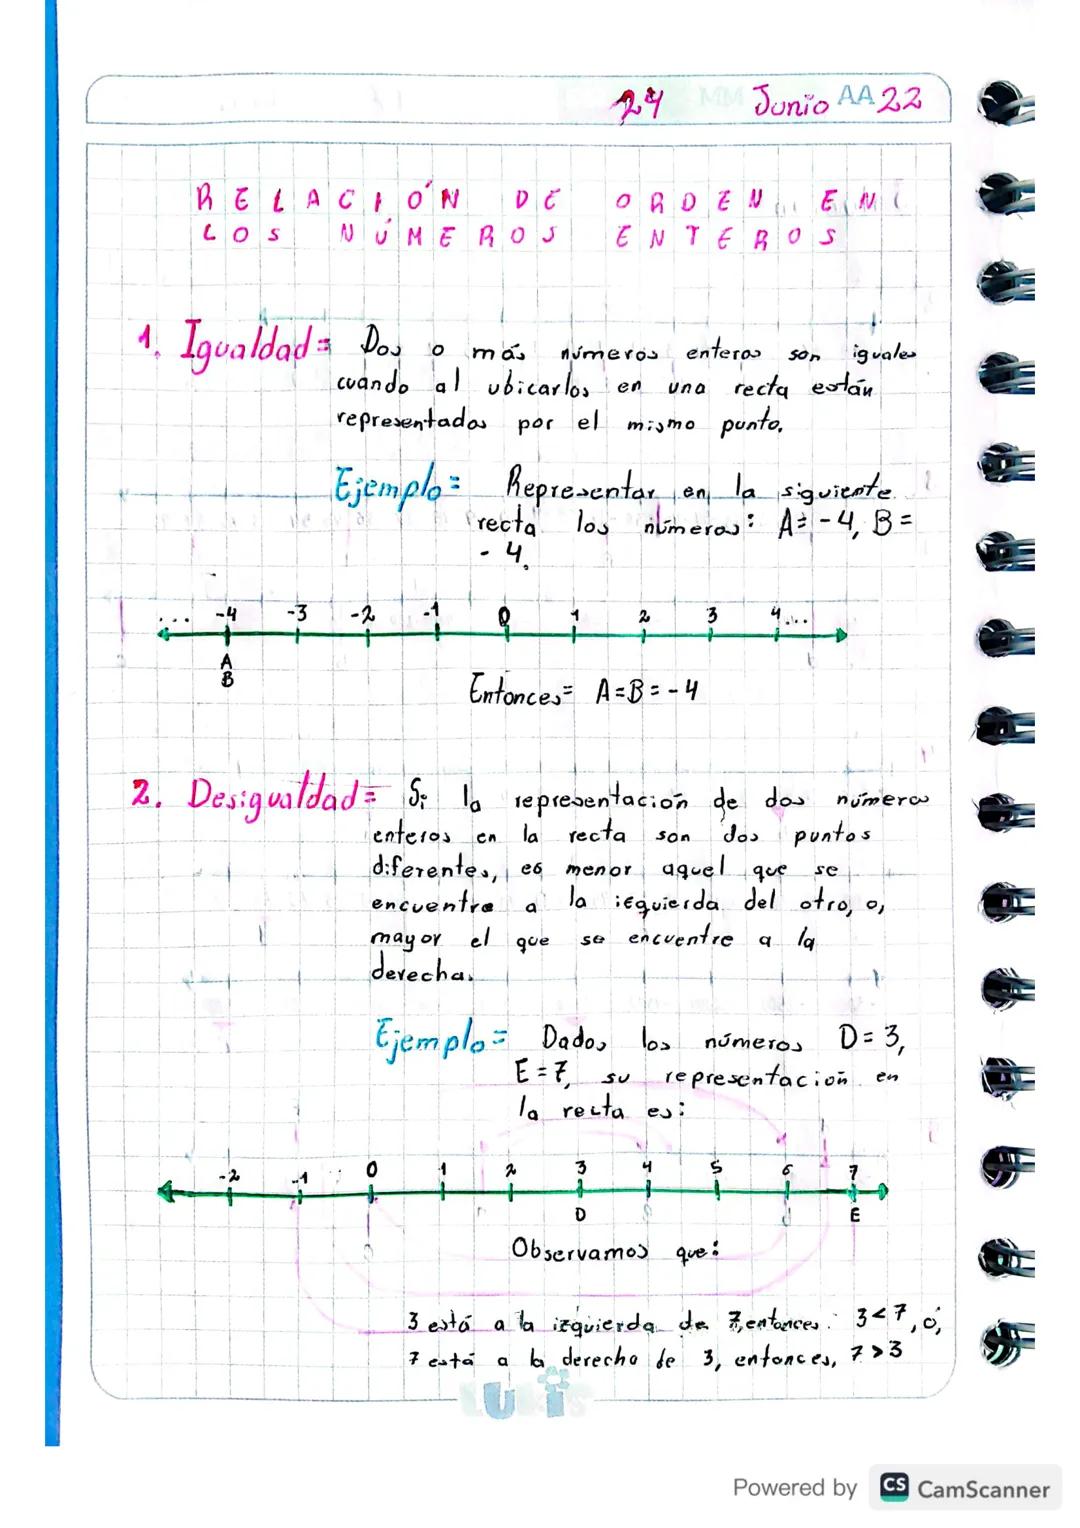 24 MM Junio AA 22
RELACIÓN DE ORDEN EN
LOS NÚMEROS ENTEROS
1. Igualdad= Dos o más números enteros son iguales
cuando al ubicarlos en una recta están
representados por el mismo punto.
Ejemplo= Representar en la siguiente
recta los números: A=-4, B=
-4.
... -4 -3 -2 -1 0 1 2 3 4...
A
B
Entonces= A=B=-4
2. Desigualdad= Si la representación de dos números
enteros en la recta son dos puntos
diferentes, es menor aquel que se
encuentre a la izquierda del otro, o,
mayor el que se encuentre a la
derecha.
Ejemplo= Dados los números D=3,
E=7, su representación en
la recta es:
-2 -1 0 1 2 3 4 5 6 7
D E
Observamos que:
3 está a la izquierda de 7, entonces: 3<7, ó,
7 está a la derecha de 3, entonces, 7>3
Powered by CS CamScanner